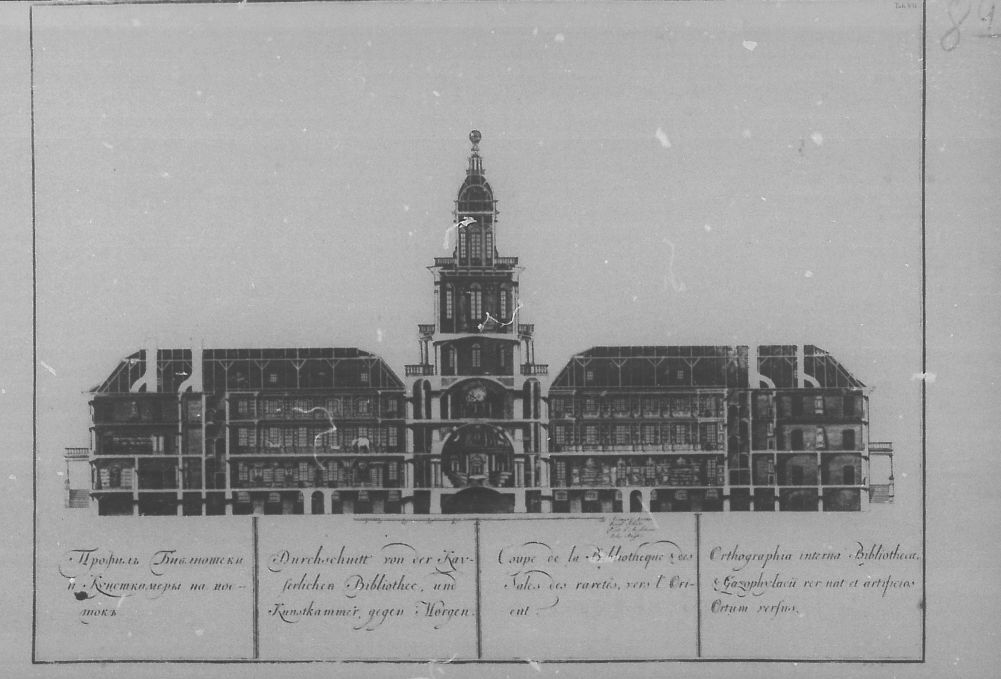 Tab. VII
89
Профиль Библиотеки
и Кунсткамеры на вос-
токъ
Durchschnitt von der Kay-
serlichen Bibliothec, und
Kunstkammer, gegen Morgen.
Coupe de la Bibliotheque & des
Sales des raretés, vers l'Ori-
ent
Orthographia interna Bibliothecæ,
& Gazophylacii rer nat et artificios
Ortum versus.